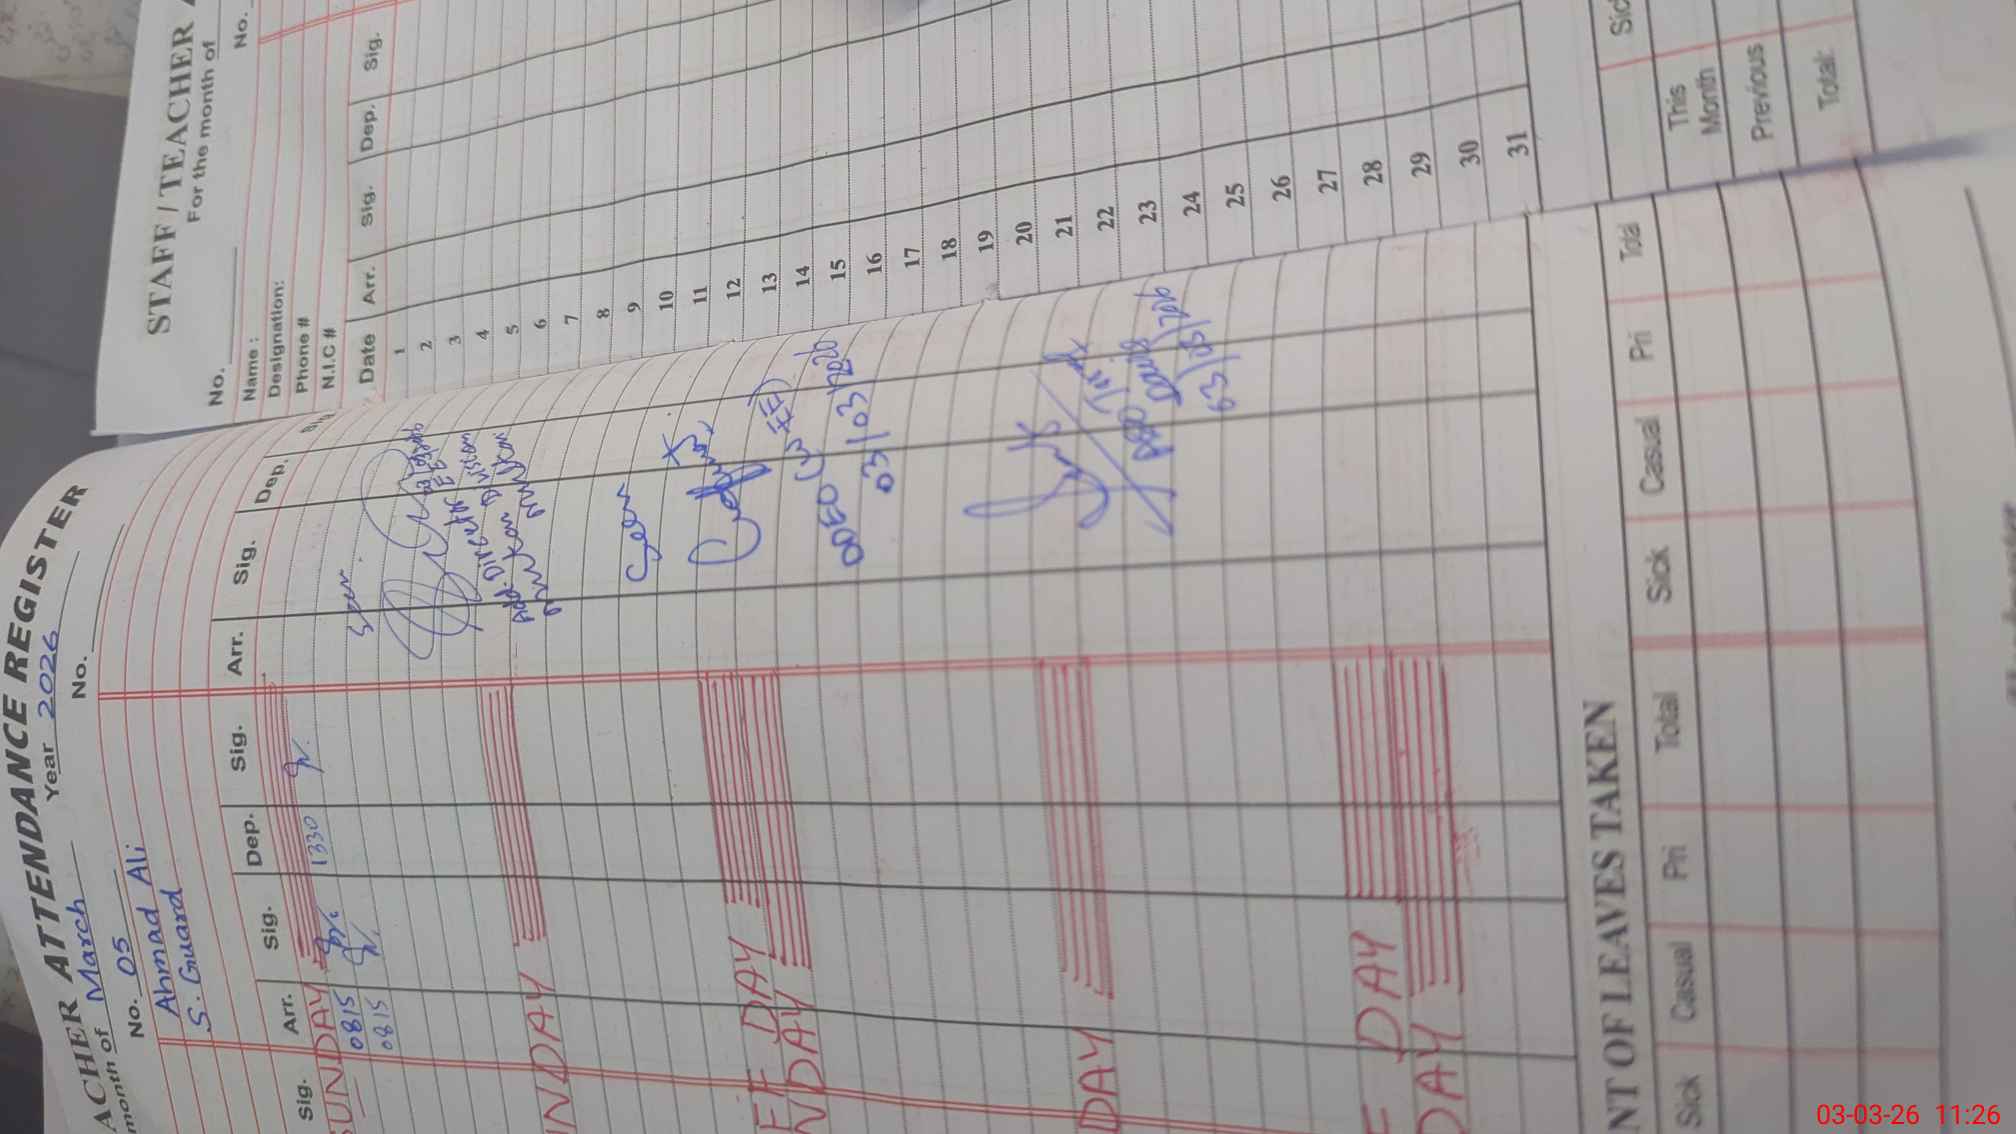 ACHER ATTENDANCE REGISTER
month of March Year 2026
No. 05 No.
Ahmad Ali
S. Guard
Sig. Arr. Sig. Dep. Sig. Arr. Sig. Dep.
SUNDAY
0815 1330
0815
UNDAY
FF DAY
NDAY
DAY
F DAY
DAY
Seen
Add. Director EE
Multan Division
Multan
Seen
DDEO (W-EE)
03/03/2026
03/03/2026
NT OF LEAVES TAKEN
Sick Casual Pri Total Sick Casual Pri Total
STAFF / TEACHER
For the month of
No. No.
Name :
Designation:
Phone #
N.I.C #
Date Arr. Sig. Dep. Sig.
1
2
3
4
5
6
7
8
9
10
11
12
13
14
15
16
17
18
19
20
21
22
23
24
25
26
27
28
29
30
31
This Month
Previous
Total:
03-03-26 11:26